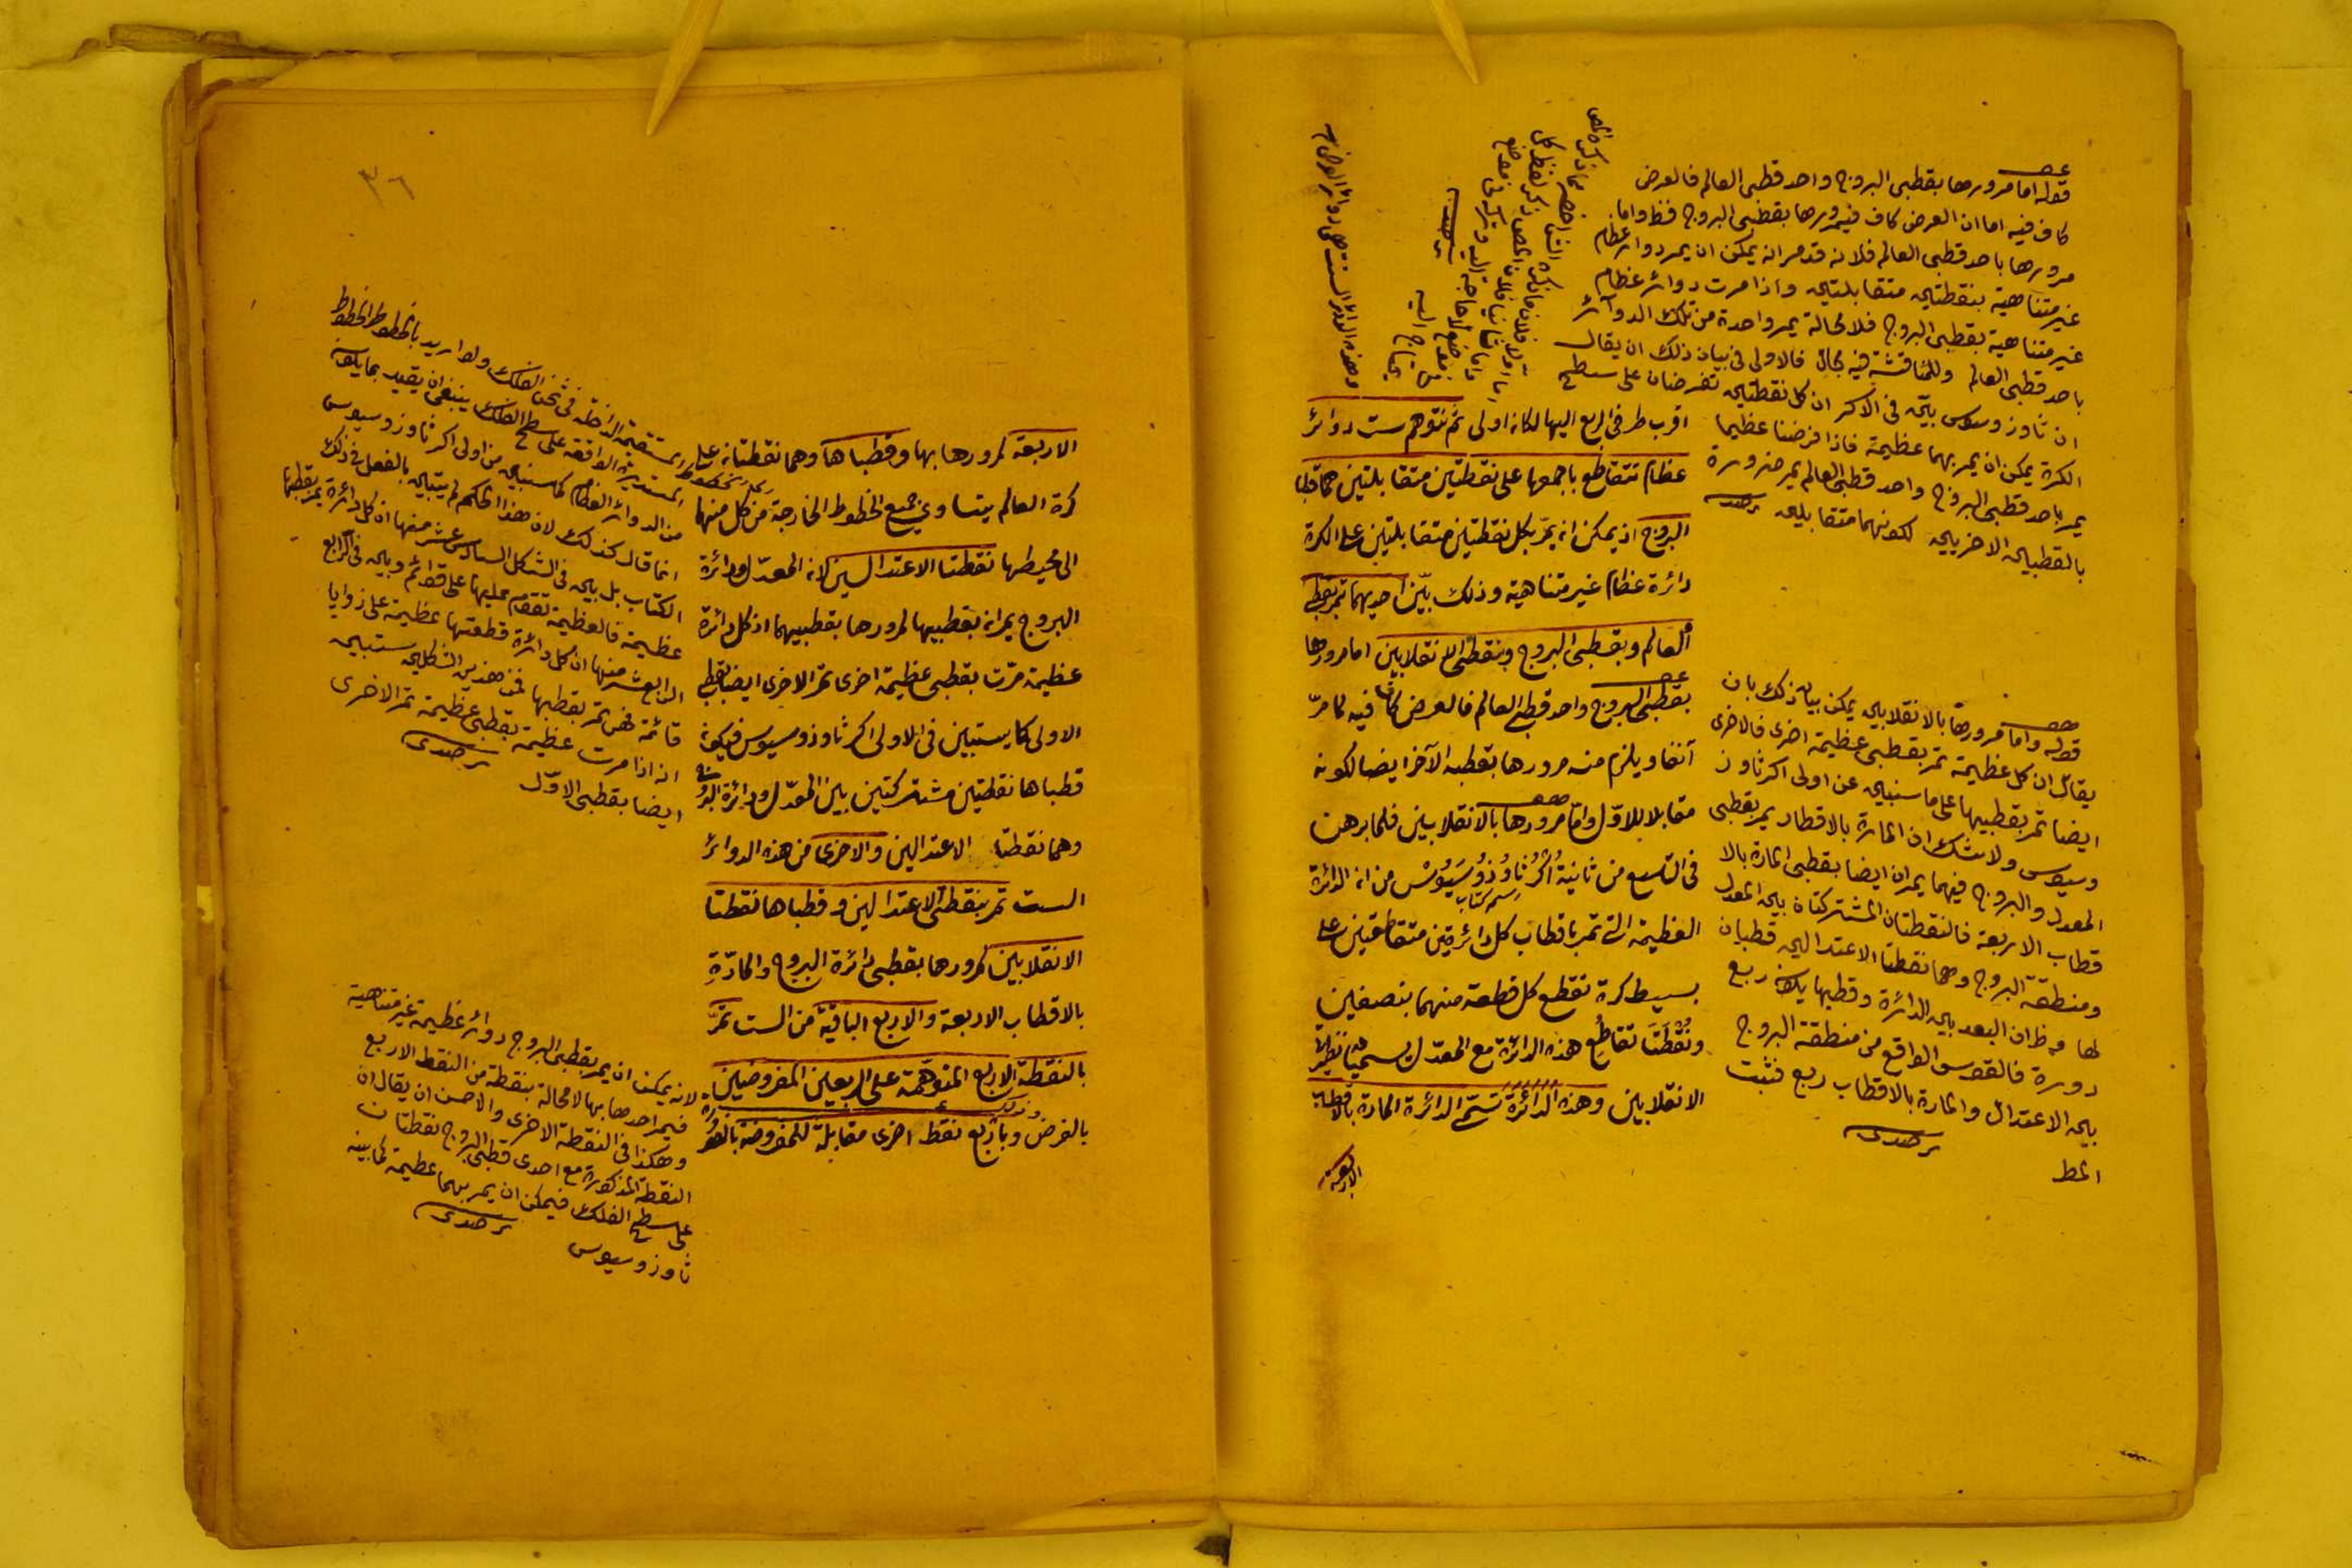 قوله اما مرورها بقطبى البروج واحد قطبى العالم فالعرض
كاف فيه اما ان العرض كاف فيمرورها بقطبى البروج فظ واما
مرورها باحد قطبى العالم فلانه قدمر انه يمكن ان يمر دوائر عظام
غير متناهية بنقطتين متقابلتين واذا مرت دوائر عظام
غير متناهية بقطبى البروج فلا محالة يمر واحدة من تلك الدوائر
باحد قطبى العالم وللمناقشة فيه مجال فالاولى فى بيان ذلك ان يقال
ان ثاوذوسيوس بين فى الاكر ان كل نقطتين تفرضان على سطح
الكرة يمكن ان يمر بهما عظيمة فاذا فرضنا عظيما
يمر باحد قطبى البروج واحد قطبى العالم يمر ضرورة
بالقطبين الاخريين لكونهما متقابلين برصدى
وهذه الدوائر الست هى دوائر العرض
اقرب طرفى الربع اليها لكان اولى ثم نتوهم ست دوائر
عظام تتقاطع باجمعها على نقطتين متقابلتين هما قطبا
البروج اذ يمكن ان يمرّ بكل نقطتين متقابلتين على الكرة
دائرة عظام غير متناهية وذلك بيّن احديهما تمر بقطبى
العالم وبقطبى البروج وبنقطتى الانقلابين اما مرورها
بقطبى البروج واحد قطبى العالم فالعرض كاف فيه لما مرّ
آنفا ويلزم منه مرورها بقطبه الآخر ايضا لكونه
مقابلا للاوّل وامّا مرورها بالانقلابين فلما برهن
فى التاسع من ثانية اُكَرْ ثاوُذوُسيُوسْ من ان الدائرة
اسم كتاب
العظيمة التى تمر باقطاب كل دائرتين متقاطعتين على
بسيط كرة تقطع كل قطعة منهما بنصفين
ونُقْطَتَا تقاطُعِ هذه الدائرة مع المعدّل يسميان نظيرتى
الانقلابين وهذه الدائرة تسمّى الدائرة المارة بالاقطاب
الاربعة
قوله واما مرورها بالانقلابين يمكن بيان ذلك بان
يقال ان كل عظيمة تمر بقطبى عظيمة اخرى فالاخرى
ايضا تمر بقطبيها على ما سنبين عن اولى اكر ثاوذ
وسيوس ولا شك ان المارة بالاقطار يمر بقطبى
المعدل والبروج فيهما يمران ايضا بقطبى المارة بالا
قطاب الاربعة فالنقطتان المشتركتان بين المعدل
ومنطقة البروج وهما نقطتا الاعتدالين قطبان
لها وظ ان البعد بين الدائرة وقطبها يكون ربع
دورة فالقوس الواقع من منطقة البروج
بين الاعتدال والمارة بالاقطاب ربع فثبت
المط برصدى
٣٦
الاربعة لمرورها بها وقطباها وهما نقطتان على
كرة العالم يتساوى جميع الخطوط الخارجة من كل منهما
الى محيطها نقطتا الاعتدالين لان المعدّل ودائرة
البروج يمران بقطبيها لمرورها بقطبيهما اذ كل دائرة
عظيمة مرّت بقطبى عظيمة اخرى تمر الاخرى ايضا بقطبى
الاولى كما يستبين فى الاولى اكر ثاوذوسيوس فيكون
قطباها نقطتين مشتركتين بين المعدّل ودائرة البروج
وهما نقطتا الاعتدالين والاخرى من هذه الدوائر
الست تمر بنقطتى الاعتدالين وقطباها نقطتا
الانقلابين لمرورها بقطبى دائرة البروج والمارّةِ
بالاقطاب الاربعة والاربع الباقية من الست تمرّ
بالنقطة الاربع المتوهّمة على الربعين المفروضين
بالفرض وباربع نقط اخرى مقابلة للمفروضة بالضرورة
المستقيمة الداخلة فى ثخن الفلك ولو اريد بالخطوط الخطوط
المستديرة الواقعة على سطح الفلك ينبغى ان يقيد بما يكون
من الدوائر العظام كما سنبين من اولى اكر ثاوذوسيوس
انما قال كذلك لان هذا الحكم لم يتبين بالفعل فى ذلك
الكتاب بل بين فى الشكل السادس عشر منها ان كل دائرة يمر بقطبها
عظيمة فالعظيمة تقوم عليها على قوائم وبين فى الرابع
الرابع عشر منها ان كل دائرة قطعتها عظيمة على زوايا
قائمة فهى تمر بقطبها فمن هذين الشكلين ستبين
انه اذا مرت عظيمة بقطبى عظيمة تمر الاخرى
ايضا بقطبى الاوّل برصدى
لانه يمكن ان يمر بقطبى البروج دوائر عظيمة غير متناهية
فيمر احدها بها لا محالة بنقطة من النقط الاربع
وهكذا فى النقطة الاخرى والاحسن ان يقال ان
النقطة المذكورة مع احدى قطبى البروج نقطتان
على سطح الفلك فيمكن ان يمر بهما عظيمة لما بينه
ثاوذوسيوس برصدى